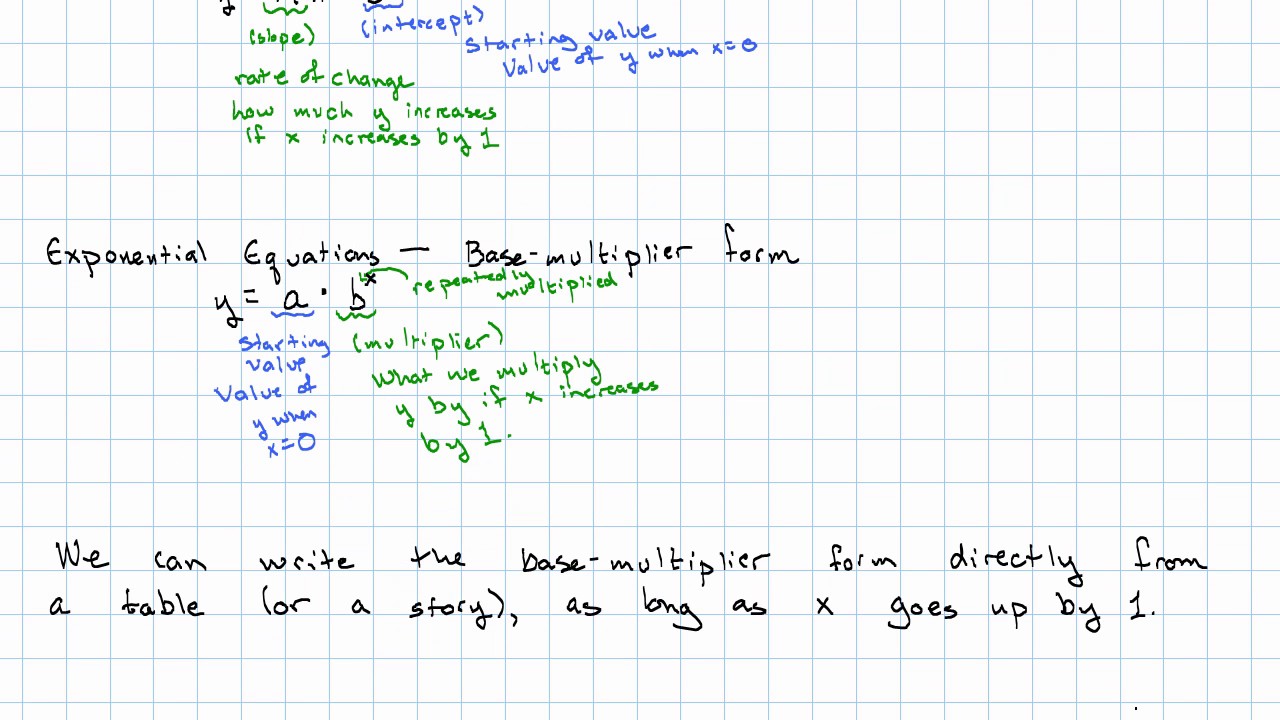 (slope)
(intercept)
starting value
Value of y when x=0
rate of change
how much y increases
if x increases by 1
Exponential Equations — Base-multiplier form
y = a · b^x
repeatedly
multiplied
starting
value
Value of
y when
x=0
(multiplier)
What we multiply
y by if x increases
by 1.
We can write the base-multiplier form directly from
a table (or a story), as long as x goes up by 1.